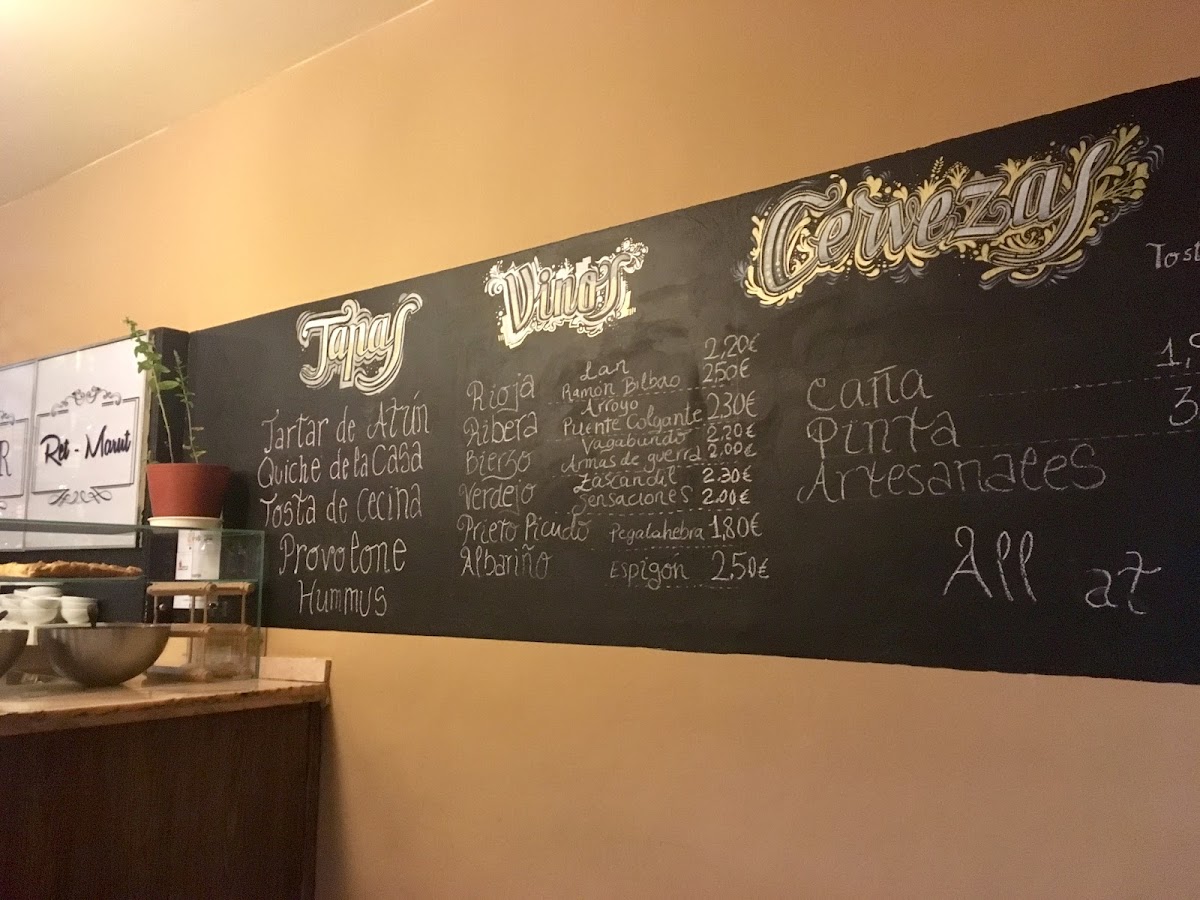 Ret - Marut
Tapas
Tartar de Atún
Quiche de la Casa
Tosta de Cecina
Provolone
Hummus
Vinos
Rioja
Lan 2,20€
Ramón Bilbao 2,50€
Ribera
Arroyo
Puente Colgante 2,30€
Bierzo
Vagabundo 2,20€
Armas de guerra 2,00€
Verdejo
Zascandil 2,30€
Sensaciones 2,00€
Prieto Picudo Pegalahebra 1,80€
Albariño Espigón 2,50€
Cervezas
Caña
Pinta
Artesanales
All at